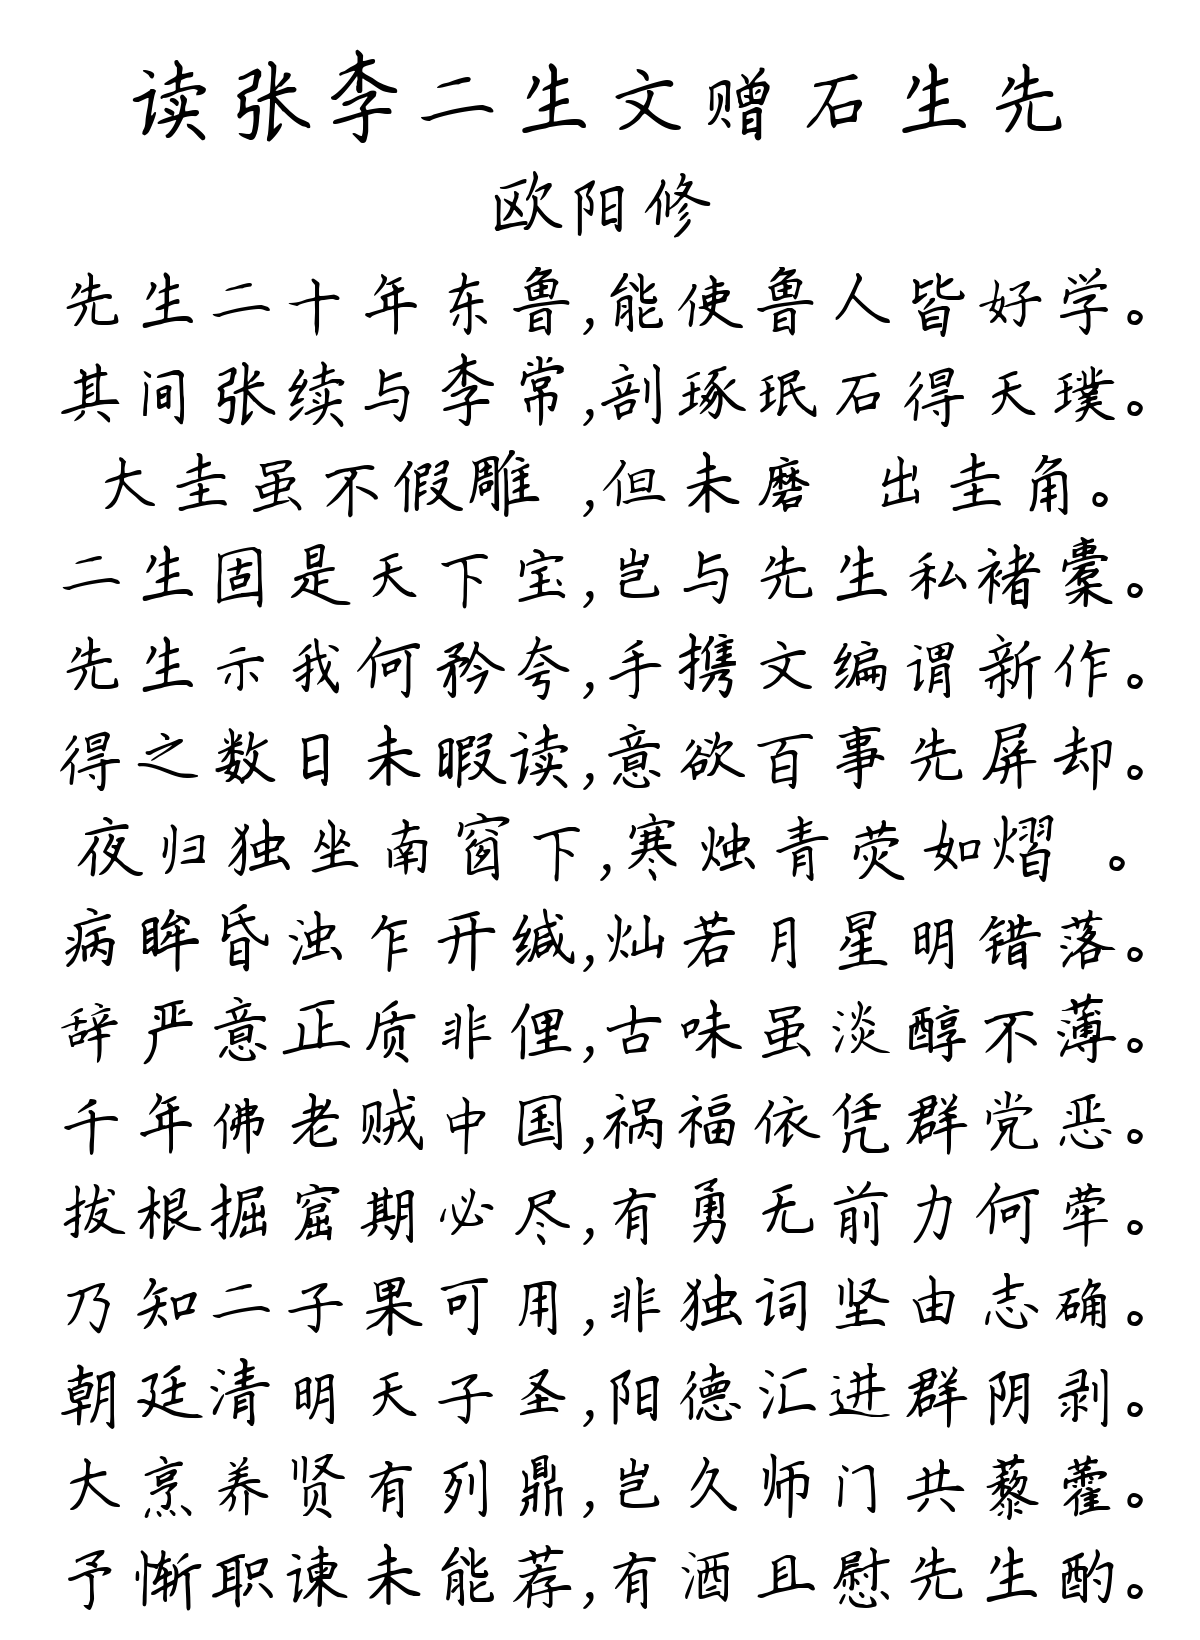 读张李二生文赠石生先
欧阳修
先生二十年东鲁,能使鲁人皆好学。
其间张续与李常,剖琢珉石得天璞。
大圭虽不假雕 ,但未磨 出圭角。
二生固是天下宝,岂与先生私褚橐。
先生示我何矜夸,手携文编谓新作。
得之数日未暇读,意欲百事先屏却。
夜归独坐南窗下,寒烛青荧如熠 。
病眸昏浊乍开缄,灿若月星明错落。
辞严意正质非俚,古味虽淡醇不薄。
千年佛老贼中国,祸福依凭群党恶。
拔根掘窟期必尽,有勇无前力何荦。
乃知二子果可用,非独词坚由志确。
朝廷清明天子圣,阳德汇进群阴剥。
大烹养贤有列鼎,岂久师门共藜藿。
予惭职谏未能荐,有酒且慰先生酌。